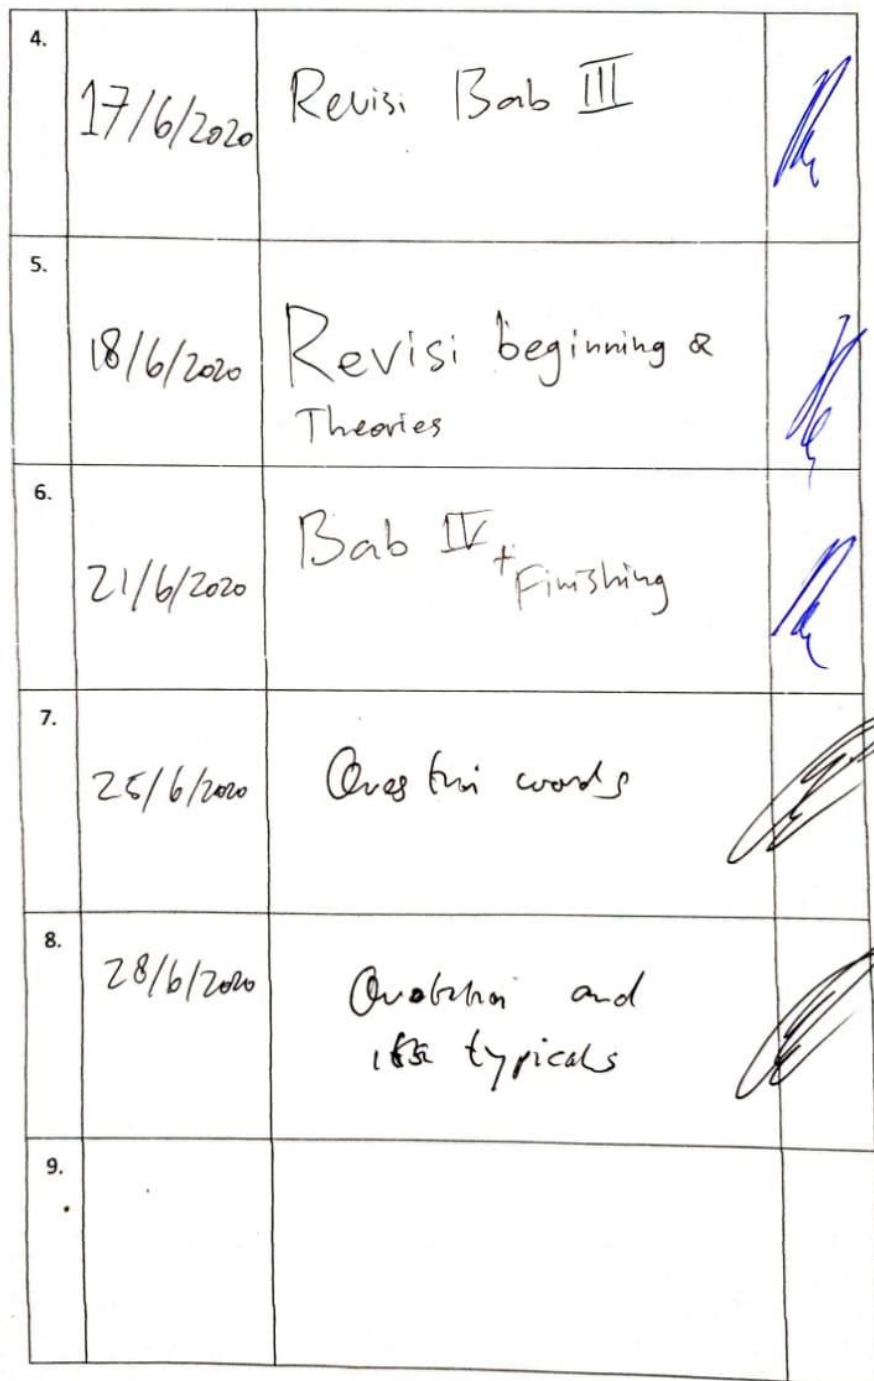 4.
17/6/2020
Revisi Bab III
5.
18/6/2020
Revisi beginning &
Theories
6.
21/6/2020
Bab IV + Finishing
7.
25/6/2020
words
8.
28/6/2020
and
typicals
9.